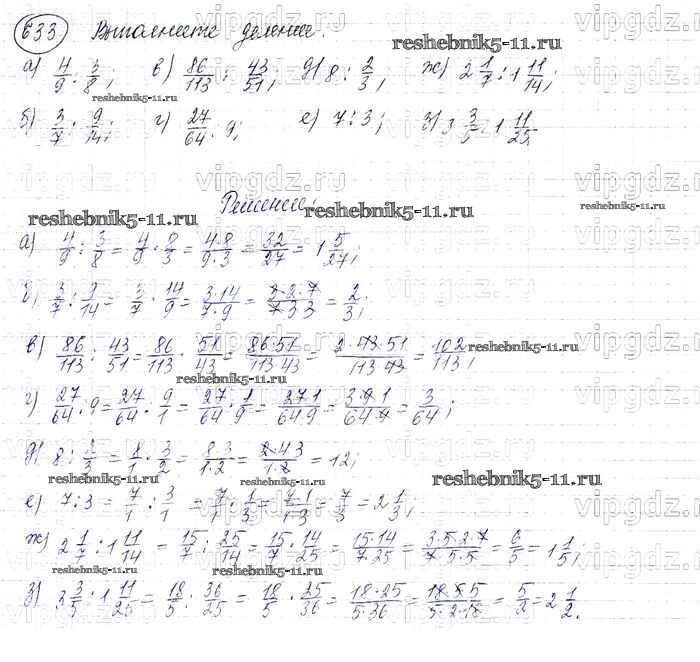 633 Выполните деление:
а) 4/9 : 3/8; в) 86/113 : 43/51; д) 8 : 2/3; ж) 2 1/7 : 1 11/14;
б) 3/7 : 9/14; г) 27/64 : 9; е) 7 : 3; з) 3 3/5 : 1 11/25
Решение:
а) 4/9 : 3/8 = 4/9 · 8/3 = 4·8/9·3 = 32/27 = 1 5/27;
б) 3/7 : 9/14 = 3/7 · 14/9 = 3·14/7·9 = 3·2·7/7·3·3 = 2/3;
в) 86/113 : 43/51 = 86/113 · 51/43 = 86·51/113·43 = 2·43·51/113·43 = 102/113;
г) 27/64 : 9 = 27/64 : 9/1 = 27/64 · 1/9 = 27·1/64·9 = 3·9·1/64·9 = 3/64;
д) 8 : 2/3 = 8/1 · 3/2 = 8·3/1·2 = 2·4·3/1·2 = 12;
е) 7 : 3 = 7/1 : 3/1 = 7/1 · 1/3 = 7·1/1·3 = 7/3 = 2 1/3;
ж) 2 1/7 : 1 11/14 = 15/7 : 25/14 = 15/7 · 14/25 = 15·14/7·25 = 3·5·2·7/7·5·5 = 6/5 = 1 1/5;
з) 3 3/5 : 1 11/25 = 18/5 : 36/25 = 18/5 · 25/36 = 18·25/5·36 = 18·5·5/5·2·18 = 5/2 = 2 1/2.
vipgdz.ru
reshebnik5-11.ru